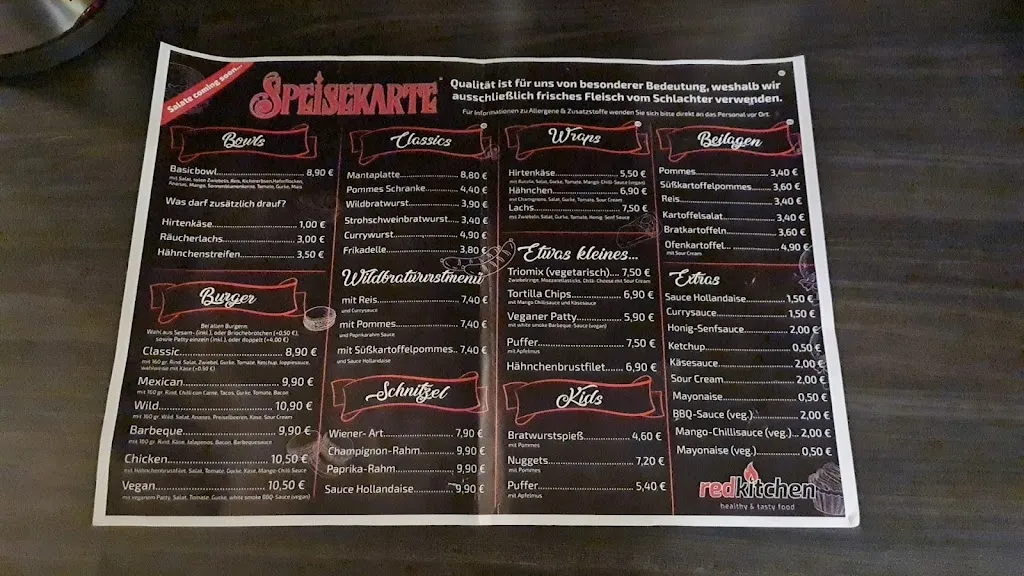 Salate coming soon...
SPEISEKARTE
Qualität ist für uns von besonderer Bedeutung, weshalb wir
ausschließlich frisches Fleisch vom Schlachter verwenden.
Für Informationen zu Allergene & Zusatzstoffe wenden Sie sich bitte direkt an das Personal vor Ort.
Bowls
Basicbowl 8,90 €
mit Salat, roten Zwiebeln, Reis, Kichererbsen, Haferflocken,
Ananas, Mango, Sonnenblumenkerne, Tomate, Gurke, Mais
Was darf zusätzlich drauf?
Hirtenkäse 1,00 €
Räucherlachs 3,00 €
Hähnchenstreifen 3,50 €
Burger
Bei allen Burgern:
Wahl aus Sesam- (inkl.), oder Briochebrötchen (+0,50 €),
sowie Patty einzeln (inkl.), oder doppelt (+4,00 €)
Classic 8,90 €
mit 160 gr. Rind, Salat, Zwiebel, Gurke, Tomate, Ketchup, Joppiesauce,
wahlweise mit Käse (+0,50 €)
Mexican 9,90 €
mit 160 gr. Rind, Chilli con Carne, Tacos, Gurke, Tomate, Bacon
Wild 10,90 €
mit 160 gr. Wild, Salat, Ananas, Preiselbeeren, Käse, Sour Cream
Barbeque 9,90 €
mit 160 gr. Rind, Käse, Jalapenos, Bacon, Barbequesauce
Chicken 10,50 €
mit Hähnchenbrustfilet, Salat, Tomate, Gurke, Käse, Mango-Chilli-Sauce
Vegan 10,50 €
mit veganem Patty, Salat, Tomate, Gurke, white smoke BBQ-Sauce (vegan)
Classics
Mantaplatte 8,80 €
Pommes Schranke 4,40 €
Wildbratwurst 3,90 €
Strohschweinbratwurst 3,40 €
Currywurst 4,90 €
Frikadelle 3,80 €
Wildbratwurstmenü
mit Reis 7,40 €
und Currysauce
mit Pommes 7,40 €
und Paprikarahm Sauce
mit Süßkartoffelpommes.. 7,40 €
und Sauce Hollandaise
Schnitzel
Wiener- Art 7,90 €
Champignon-Rahm 9,90 €
Paprika-Rahm 9,90 €
Sauce Hollandaise 9,90 €
Wraps
Hirtenkäse 5,50 €
mit Rucola, Salat, Gurke, Tomate, Mango-Chilli-Sauce (vegan)
Hähnchen 6,90 €
mit Champignons, Salat, Gurke, Tomate, Sour Cream
Lachs 7,50 €
mit Zwiebeln, Salat, Gurke, Tomate, Honig- Senf Sauce
Etwas kleines...
Triomix (vegetarisch) 7,50 €
Zwiebelringe, Mozzarellasticks, Chilli- Cheese mit Sour Cream
Tortilla Chips 6,90 €
mit Mango Chillisauce und Käsesauce
Veganer Patty 5,90 €
mit white smoke Barbeque-Sauce (vegan)
Puffer 7,50 €
mit Apfelmus
Hähnchenbrustfilet 6,90 €
Kids
Bratwurstspieß 4,60 €
mit Pommes
Nuggets 7,20 €
mit Pommes
Puffer 5,40 €
mit Apfelmus
Beilagen
Pommes 3,40 €
Süßkartoffelpommes 3,60 €
Reis 3,40 €
Kartoffelsalat 3,40 €
Bratkartoffeln 3,60 €
Ofenkartoffel... 4,90 €
mit Sour Cream
Extras
Sauce Hollandaise 1,50 €
Currysauce 1,50 €
Honig-Senfsauce 2,00 €
Ketchup 0,50 €
Käsesauce 2,00 €
Sour Cream 2,00 €
Mayonaise 0,50 €
BBQ-Sauce (veg.) 2,00 €
Mango-Chillisauce (veg.)... 2,00 €
Mayonaise (veg.) 0,50 €
redkitchen
healthy & tasty food